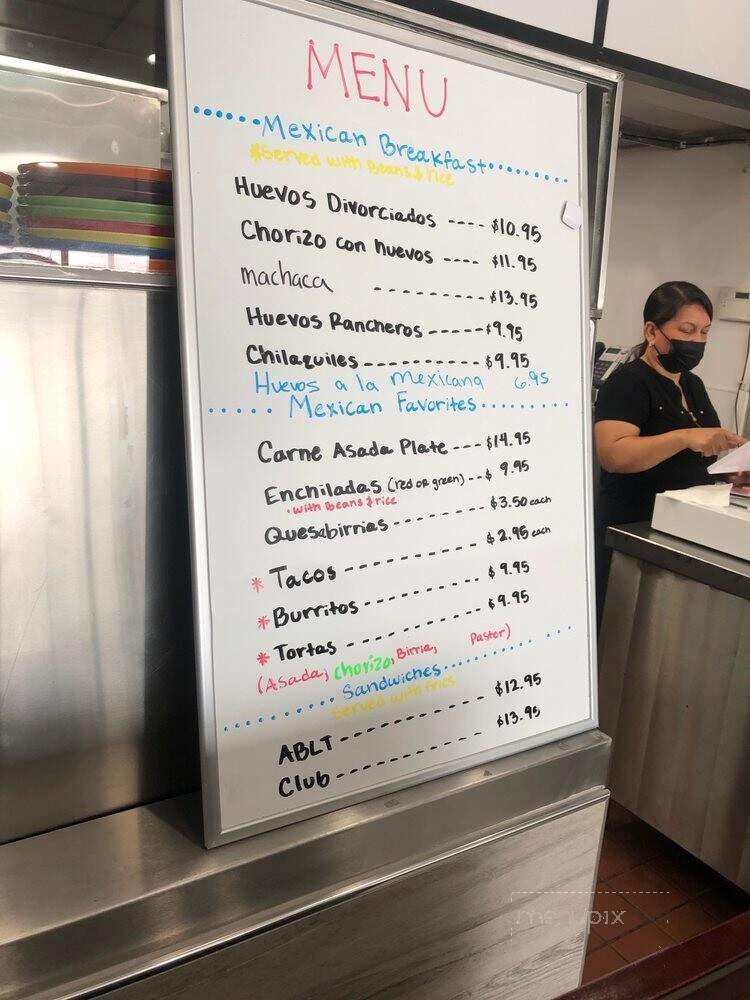 MENU
Mexican Breakfast
*Served with Beans & rice
Huevos Divorciados ---- $10.95
Chorizo con huevos ---- $11.95
machaca --------- $13.95
Huevos Rancheros ----- $9.95
Chilaquiles ---------- $9.95
Huevos a la Mexicana 6.95
Mexican Favorites
Carne Asada Plate --- $14.95
Enchiladas (red or green) -- $ 9.95
• with Beans & rice
Quesabirrias ------- $3.50 each
* Tacos --------- $2.95 each
* Burritos -------- $9.95
* Tortas --------- $9.95
(Asada, chorizo, Birria, Pastor)
Sandwiches
Served with fries
ABLT ---------- $12.95
Club ---------- $13.95
menupix